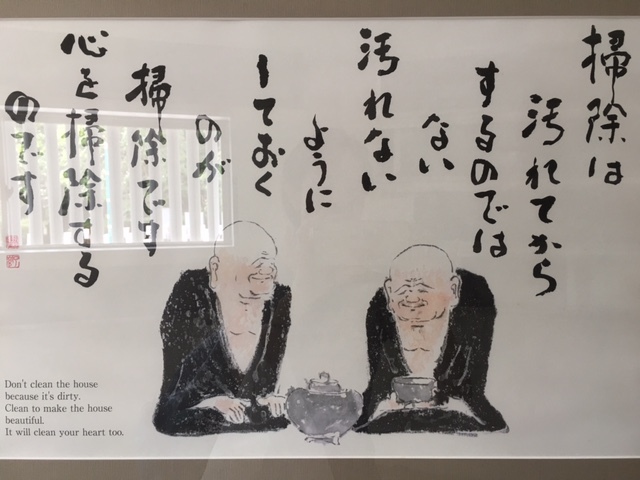 掃除は
汚れてから
するのでは
ない
汚れない
ように
しておく
のが
掃除です
心を掃除する
のです
Don't clean the house
because it's dirty.
Clean to make the house
beautiful.
It will clean your heart too.